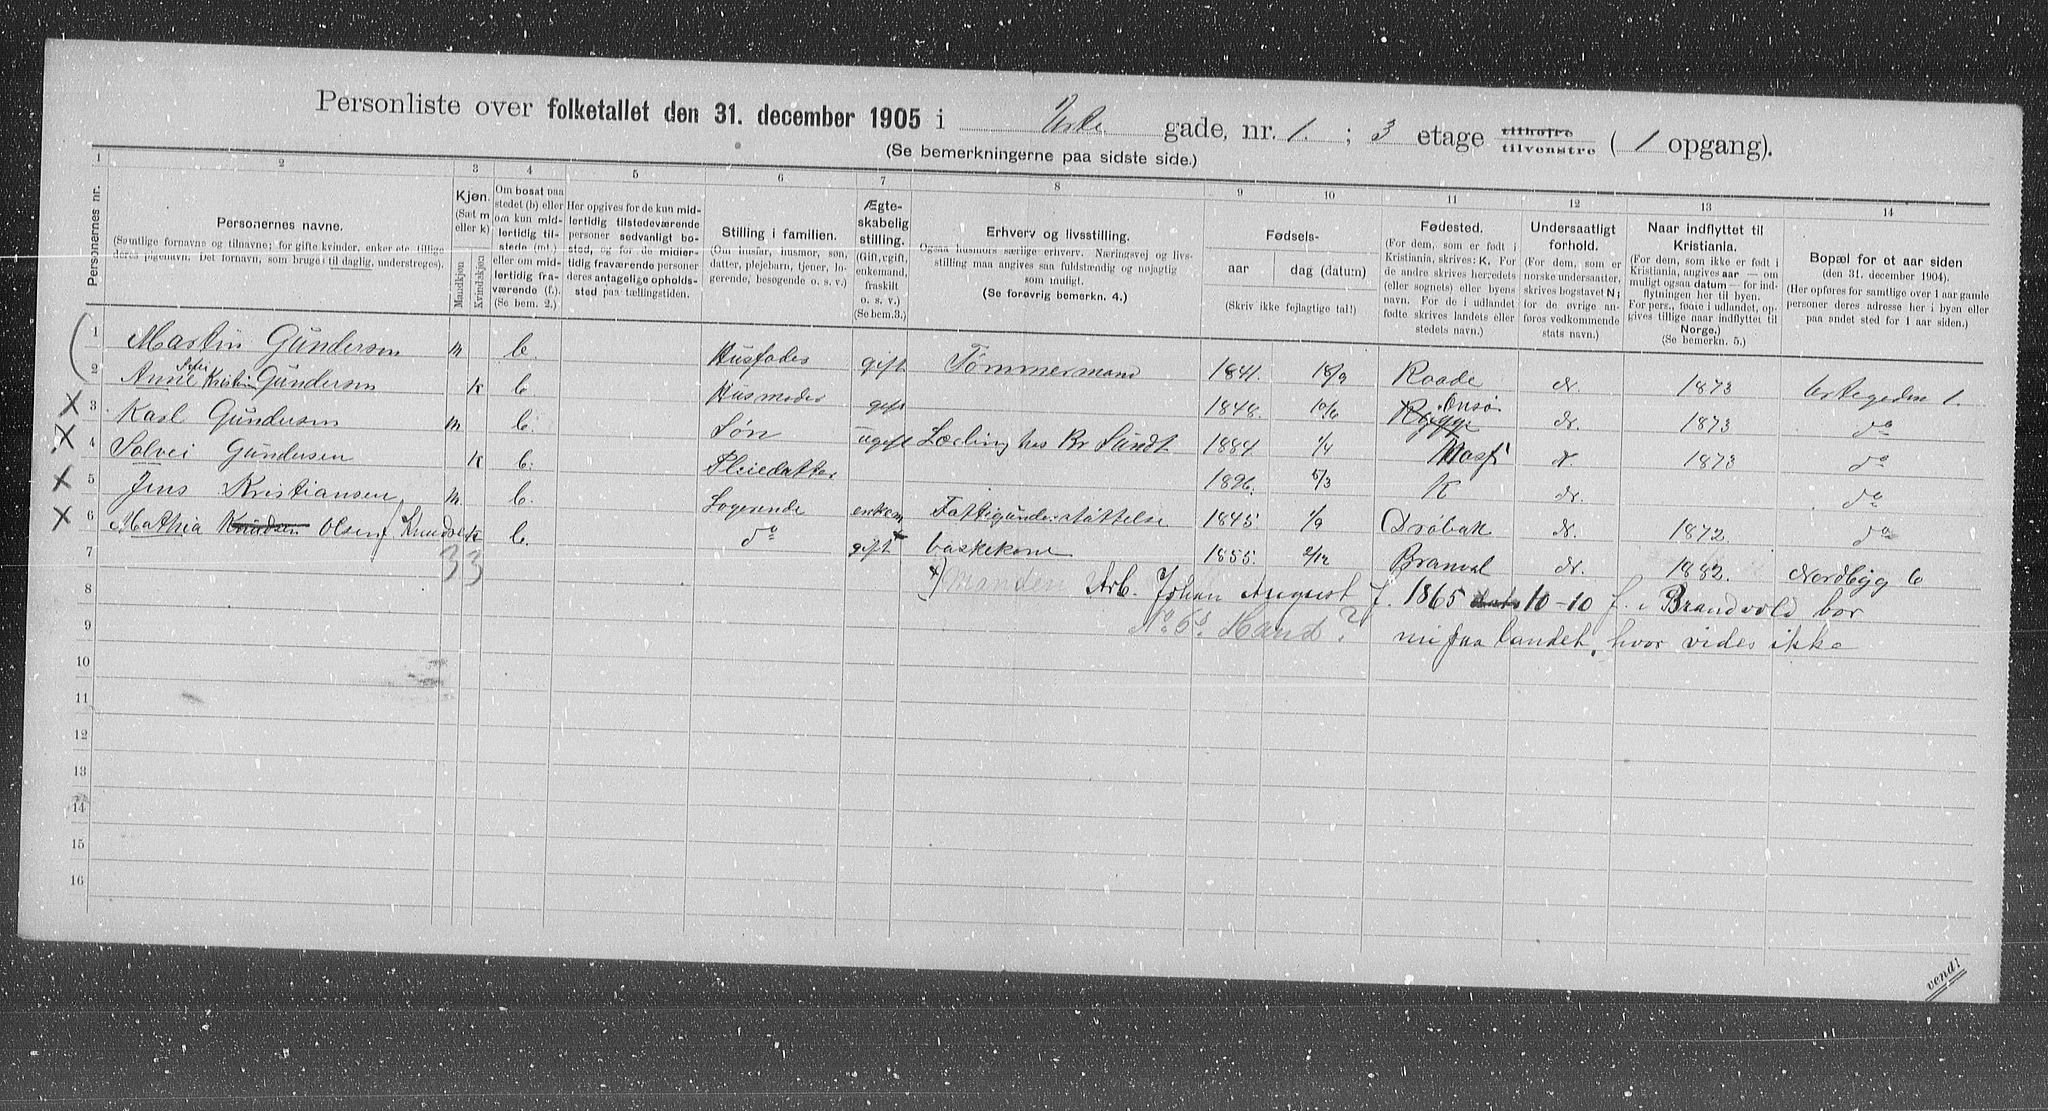 Personliste over folketallet den 31. december 1905 i Urte gade, nr. 1. ; 3 etage tilhøjre tilvenstre ( 1 opgang).
(Se bemerkningerne paa sidste side.)
1 2 3 4 5 6 7 8 9 10 11 12 13 14
Personernes nr.
Personernes navne.
(Samtlige fornavne og tilnavne; for gifte kvinder, enker etc. tillige deres pigenavn. Det fornavn, som bruges til daglig, understreges).
Kjøn.
(Sæt m eller k)
Mandkjøn
Kvindekjøn
Om bosat paa stedet (b) eller om kun midlertidig tilstede (mt.) eller om midlertidig fraværende (f.).
(Se bem. 2.)
Her opgives for de kun midlertidig tilstedeværende personer sedvanligt bosted, og for de midlertidig fraværende personer deres antagelige opholdssted paa tællingstiden.
Stilling i familien.
(Om husfar, husmor, søn, datter, plejebarn, tjener, logerende, besøgende o. s. v.)
Ægteskabelig stilling.
(Gift, ugift, enkemand, fraskilt o. s. v.)
(Se bem. 3.)
Erhverv og livsstilling.
Ogsaa husmors særlige erhverv. Næringsvej og livsstilling maa angives saa fuldstændig og nøjagtig som muligt.
(Se forøvrig bemerkn. 4.)
Fødsels-
aar dag (datum)
(Skriv ikke fejlagtige tal!)
Fødested.
(For dem, som er født i Kristiania, skrives: K. For de andre skrives herredets (eller sognets) eller byens navn. For de i udlandet fødte skrives landets eller stedets navn.)
Undersaatligt forhold.
(For dem, som er norske undersaatter, skrives bogstavet N; for de øvrige anføres vedkommende stats navn.)
Naar indflyttet til Kristiania.
(For dem, som ikke er født i Kristiania, angives aar — om muligt ogsaa datum — for indflytningen her til byen. For pers., fødte i udlandet, opgives tillige naar indflyttet til Norge.)
(Se bemerkn. 5.)
Bopæl for et aar siden
(den 31. december 1904).
(Her opføres for samtlige over 1 aar gamle personer deres adresse her i byen eller paa andet sted for 1 aar siden.)
1 Martin Gundersen m b. Husfader gift Tømmermand 1841. 18/9 Raade N. 1873 Urtegaden 1.
2 Anne Kristin Gundersen k b. Husmoder gift 1848. 10/6 Rygge Onsø N. 1873 do
3 Karl Gundersen m b. Søn ugift Lærling hos Br Sundt 1884. 1/4 Moss N. 1873 do
4 Solvei Gundersen k b. Pleiedatter 1896. 5/3 K N. do
5 Jens Kristiansen m b. Logerende enkem Fattigunderstøttelse 1845 1/9 Drøbak N. 1872 do
6 Mathia Knudsen Olsen f Knudsen k b. do gift x vaskekone 1855. 2/12 Branval N. 1882. Nordbyg 6
7 33 x) Manden Arb. Johan August f. 1865 10-10 f. i Brandvold bor
8 No 6s Mand? nu paa landet, hvor vides ikke
9
10
11
12
13
14
15
16
vend!